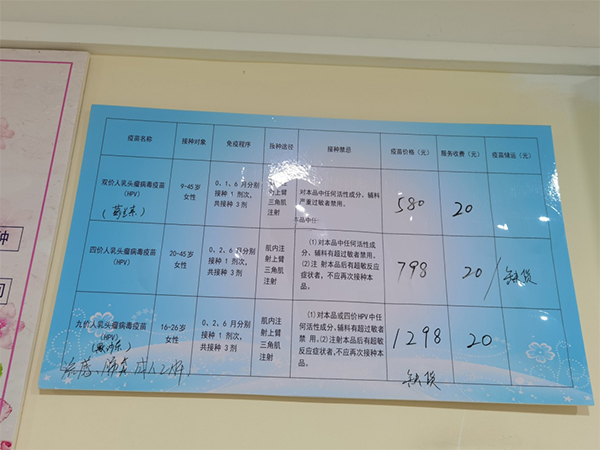 疫苗名称 接种对象 免疫程序 接种途径 接种禁忌 疫苗价格(元) 服务收费(元) 疫苗储运(元)
双价人乳头瘤病毒疫苗
(HPV)
9-45岁
女性
0、1、6月分别
接种1剂次,
共接种3剂
射上臂
三角肌
注射
对本品中任何活性成分、辅料
严重过敏者禁用。
580
20
四价人乳头瘤病毒疫苗
(HPV)
20-45岁
女性
0、2、6月分别
接种1剂次,
共接种3剂
肌内注
射上臂
三角肌
注射
(1)对本品中任何活性成
分、辅料有超过敏者禁用。
(2)注 射本品后有超敏反应
症状者,不应再次接种本
品。
798
20
缺货
九价人乳头瘤病毒疫苗
(HPV)
16-26岁
女性
0、2、6月分别
接种1剂次,
共接种3剂
肌内注
射上臂
三角肌
注射
(1)对本品或四价HPV中任
何活性成分、辅料有超过敏者
禁 用。(2)注射本品后有超敏反
应症状者,不应再次接种本品。
1298
20
缺货
种